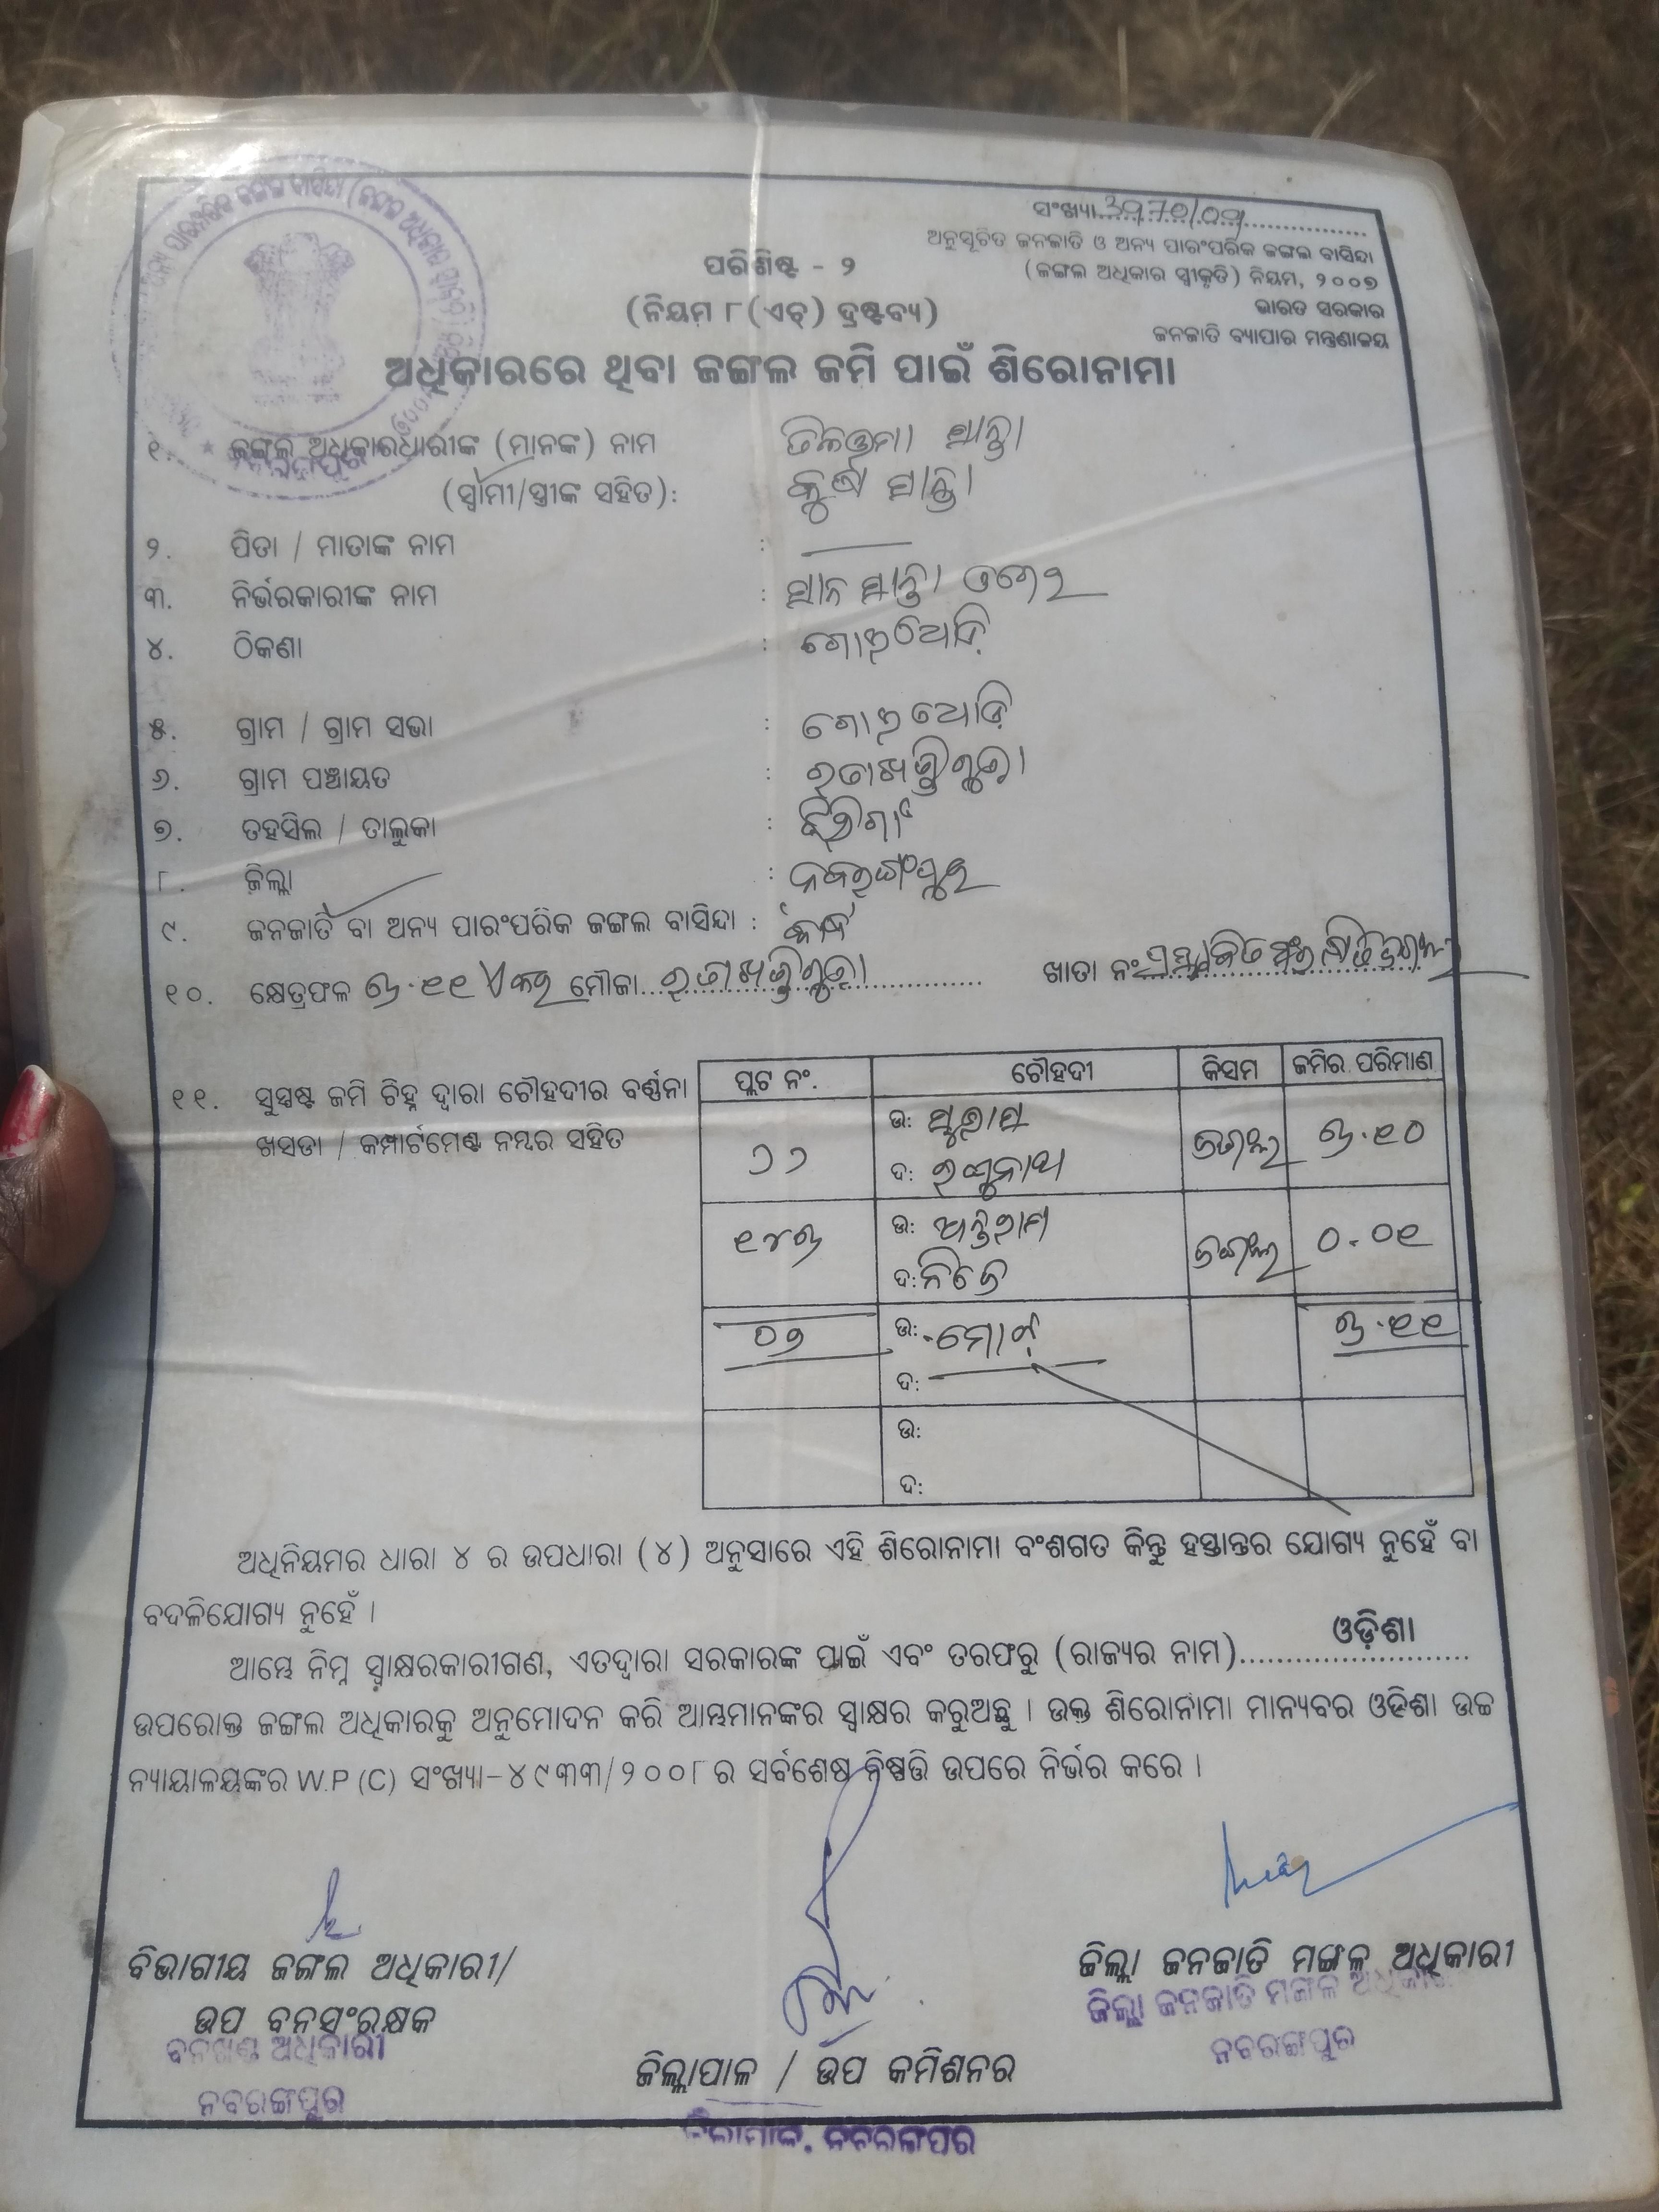 ସଂଖ୍ୟା
ଅନୁସୂଚିତ ଜନଜାତି ଓ ଅନ୍ୟ ପାରଂପରିକ ଜଙ୍ଗଲ ବାସିନ୍ଦା
(ଜଙ୍ଗଲ ଅଧିକାର ସ୍ୱୀକୃତି) ନିୟମ, ୨୦୦୭
ଭାରତ ସରକାର
ଜନଜାତି ବ୍ୟାପାର ମନ୍ତ୍ରଣାଳୟ
ପରିଶିଷ୍ଟ - ୨
(ନିୟମ ୮(ଏଚ୍) ଦ୍ରଷ୍ଟବ୍ୟ)
ଅଧିକାରରେ ଥିବା ଜଙ୍ଗଲ ଜମି ପାଇଁ ଶିରୋନାମା
୧. ଜଙ୍ଗଲ ଅଧିକାରଧାରୀଙ୍କ (ମାନଙ୍କ) ନାମ
(ସ୍ୱାମୀ/ସ୍ତ୍ରୀଙ୍କ ସହିତ):
୨. ପିତା / ମାତାଙ୍କ ନାମ :
୩. ନିର୍ଭରକାରୀଙ୍କ ନାମ :
୪. ଠିକଣା :
୫. ଗ୍ରାମ / ଗ୍ରାମ ସଭା :
୬. ଗ୍ରାମ ପଞ୍ଚାୟତ :
୭. ତହସିଲ / ତାଲୁକା : ଝରିଗାଁ
୮. ଜିଲ୍ଲା : ନବରଙ୍ଗପୁର
୯. ଜନଜାତି ବା ଅନ୍ୟ ପାରଂପରିକ ଜଙ୍ଗଲ ବାସିନ୍ଦା :
୧୦. କ୍ଷେତ୍ରଫଳ ୩.୧୧ ଏକର ମୌଜା ଖାତା ନଂ
୧୧. ସୁସ୍ପଷ୍ଟ ଜମି ଚିହ୍ନ ଦ୍ୱାରା ଚୌହଦୀର ବର୍ଣ୍ଣନା
ଖସଡା / କମ୍ପାର୍ଟମେଣ୍ଟ ନମ୍ବର ସହିତ
ପ୍ଲଟ ନଂ. ଚୌହଦୀ କିସମ ଜମିର ପରିମାଣ
୭୭ ଉ: ଦ: ରଘୁନାଥ ଜଙ୍ଗଲ ୩.୧୦
୧୪୩ ଉ: ଦ: ନିଜେ ଜଙ୍ଗଲ ୦.୦୧
୦୨ ଉ: ମୋଟ୍ ଦ: ୩.୧୧
ଉ:
ଦ:
ଅଧିନିୟମର ଧାରା ୪ ର ଉପଧାରା (୪) ଅନୁସାରେ ଏହି ଶିରୋନାମା ବଂଶଗତ କିନ୍ତୁ ହସ୍ତାନ୍ତର ଯୋଗ୍ୟ ନୁହେଁ ବା
ବଦଳିଯୋଗ୍ୟ ନୁହେଁ ।
ଆମ୍ଭେ ନିମ୍ନ ସ୍ୱାକ୍ଷରକାରୀଗଣ, ଏତଦ୍ୱାରା ସରକାରଙ୍କ ପାଇଁ ଏବଂ ତରଫରୁ (ରାଜ୍ୟର ନାମ) ଓଡ଼ିଶା
ଉପରୋକ୍ତ ଜଙ୍ଗଲ ଅଧିକାରକୁ ଅନୁମୋଦନ କରି ଆମ୍ଭମାନଙ୍କର ସ୍ୱାକ୍ଷର କରୁଅଛୁ । ଉକ୍ତ ଶିରୋନାମା ମାନ୍ୟବର ଓଡିଶା ଉଚ୍ଚ
ନ୍ୟାୟାଳୟଙ୍କର W.P (C) ସଂଖ୍ୟା-୪୯୩୩/୨୦୦୮ ର ସର୍ବଶେଷ ନିଷ୍ପତ୍ତି ଉପରେ ନିର୍ଭର କରେ ।
ବିଭାଗୀୟ ଜଙ୍ଗଲ ଅଧିକାରୀ/
ଉପ ବନସଂରକ୍ଷକ
ବନଖଣ୍ଡ ଅଧିକାରୀ
ନବରଙ୍ଗପୁର
ଜିଲ୍ଲାପାଳ / ଉପ କମିଶନର
ଜିଲାପାଳ, ନବରଙ୍ଗପୁର
ଜିଲ୍ଲା ଜନଜାତି ମଙ୍ଗଳ ଅଧିକାରୀ
ଜିଲ୍ଲା ଜନଜାତି ମଙ୍ଗଳ ଅଧିକାରୀ
ନବରଙ୍ଗପୁର